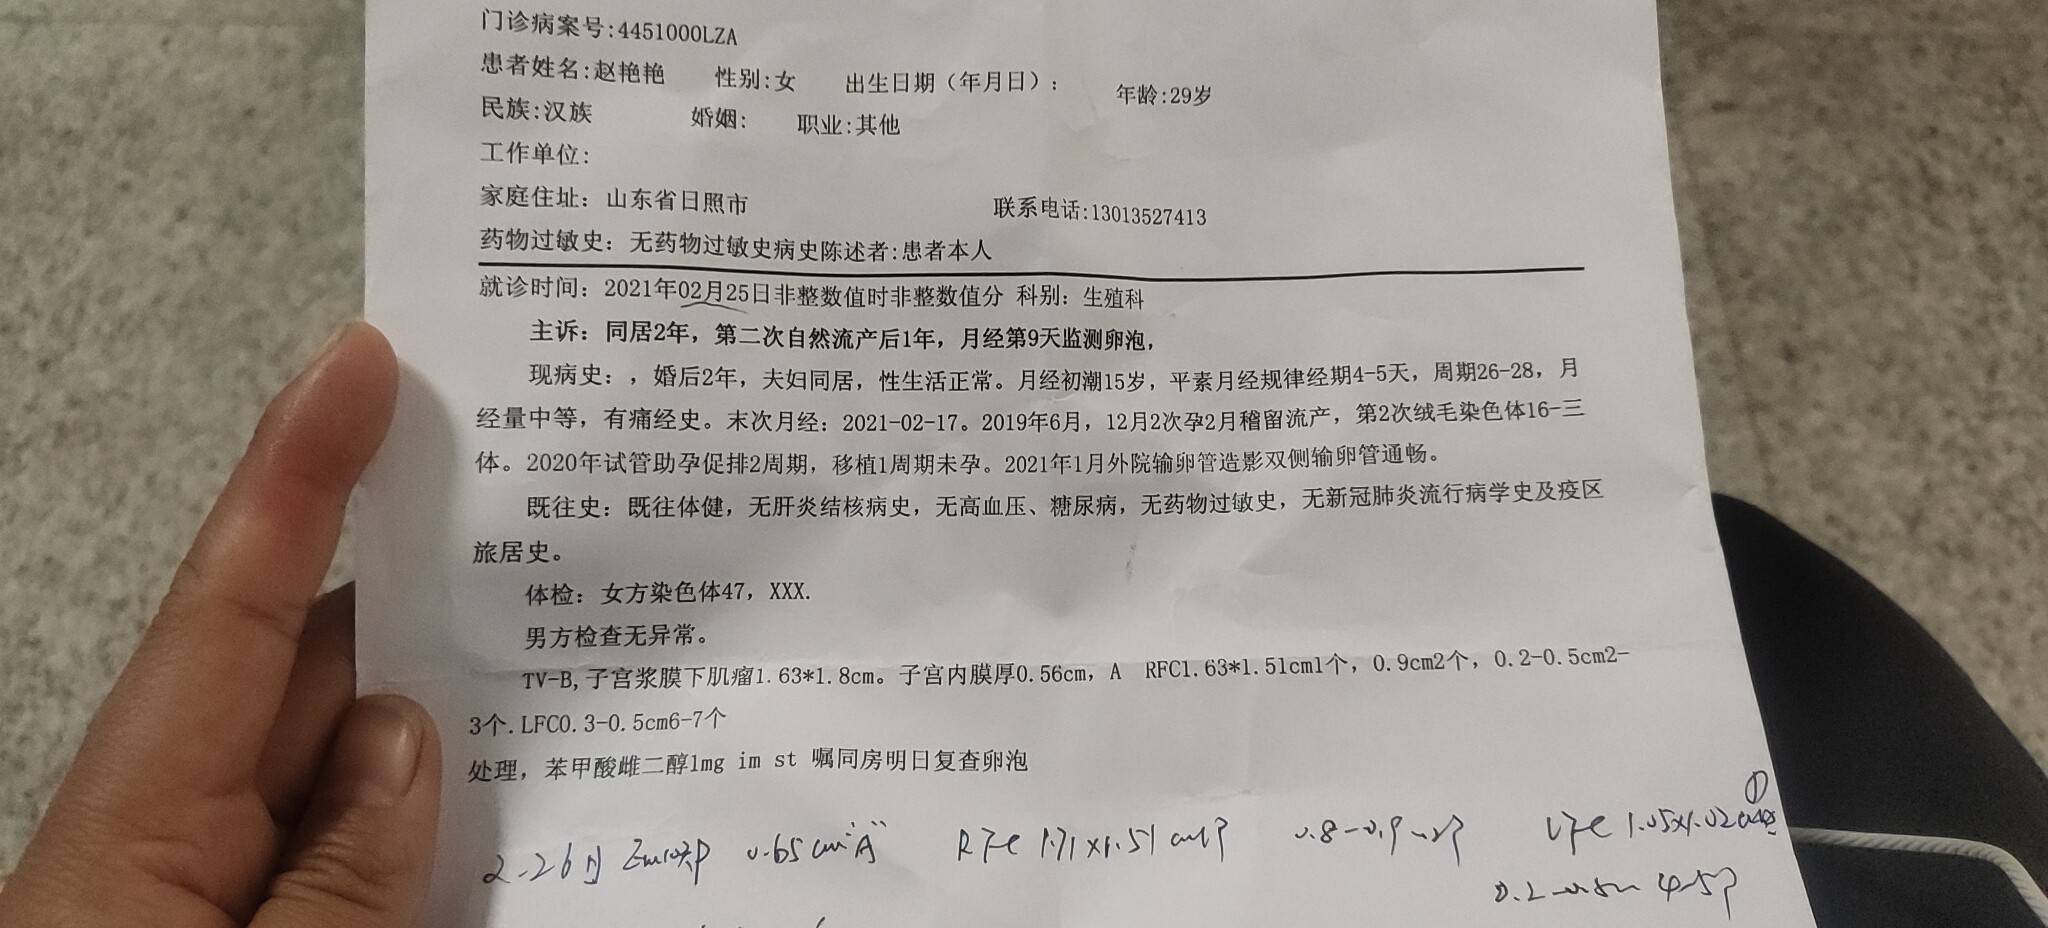 门诊病案号:4451000LZA
患者姓名:赵艳艳 性别:女 出生日期（年月日）: 年龄:29岁
民族:汉族 婚姻: 职业:其他
工作单位:
家庭住址: 山东省日照市 联系电话:13013527413
药物过敏史: 无药物过敏史病史陈述者:患者本人
就诊时间: 2021年02月25日非整数值时非整数值分 科别: 生殖科
主诉: 同居2年, 第二次自然流产后1年, 月经第9天监测卵泡,
现病史: , 婚后2年, 夫妇同居, 性生活正常。月经初潮15岁, 平素月经规律经期4-5天, 周期26-28, 月
经量中等, 有痛经史。末次月经: 2021-02-17。2019年6月, 12月2次孕2月稽留流产, 第2次绒毛染色体16-三
体。2020年试管助孕促排2周期, 移植1周期未孕。2021年1月外院输卵管造影双侧输卵管通畅。
既往史: 既往体健, 无肝炎结核病史, 无高血压、糖尿病, 无药物过敏史, 无新冠肺炎流行病学史及疫区
旅居史。
体检: 女方染色体47, XXX.
男方检查无异常。
TV-B,子宫浆膜下肌瘤1.63*1.8cm。子宫内膜厚0.56cm, A RFC1.63*1.51cm1个, 0.9cm2个, 0.2-0.5cm2-
3个.LFC0.3-0.5cm6-7个
处理, 苯甲酸雌二醇1mg im st 嘱同房明日复查卵泡
2.26日 0.65cm "A" RFC 1.71×1.51cm1个 0.8-0.9 LFC 1.05×1.02cm ①
4-5个